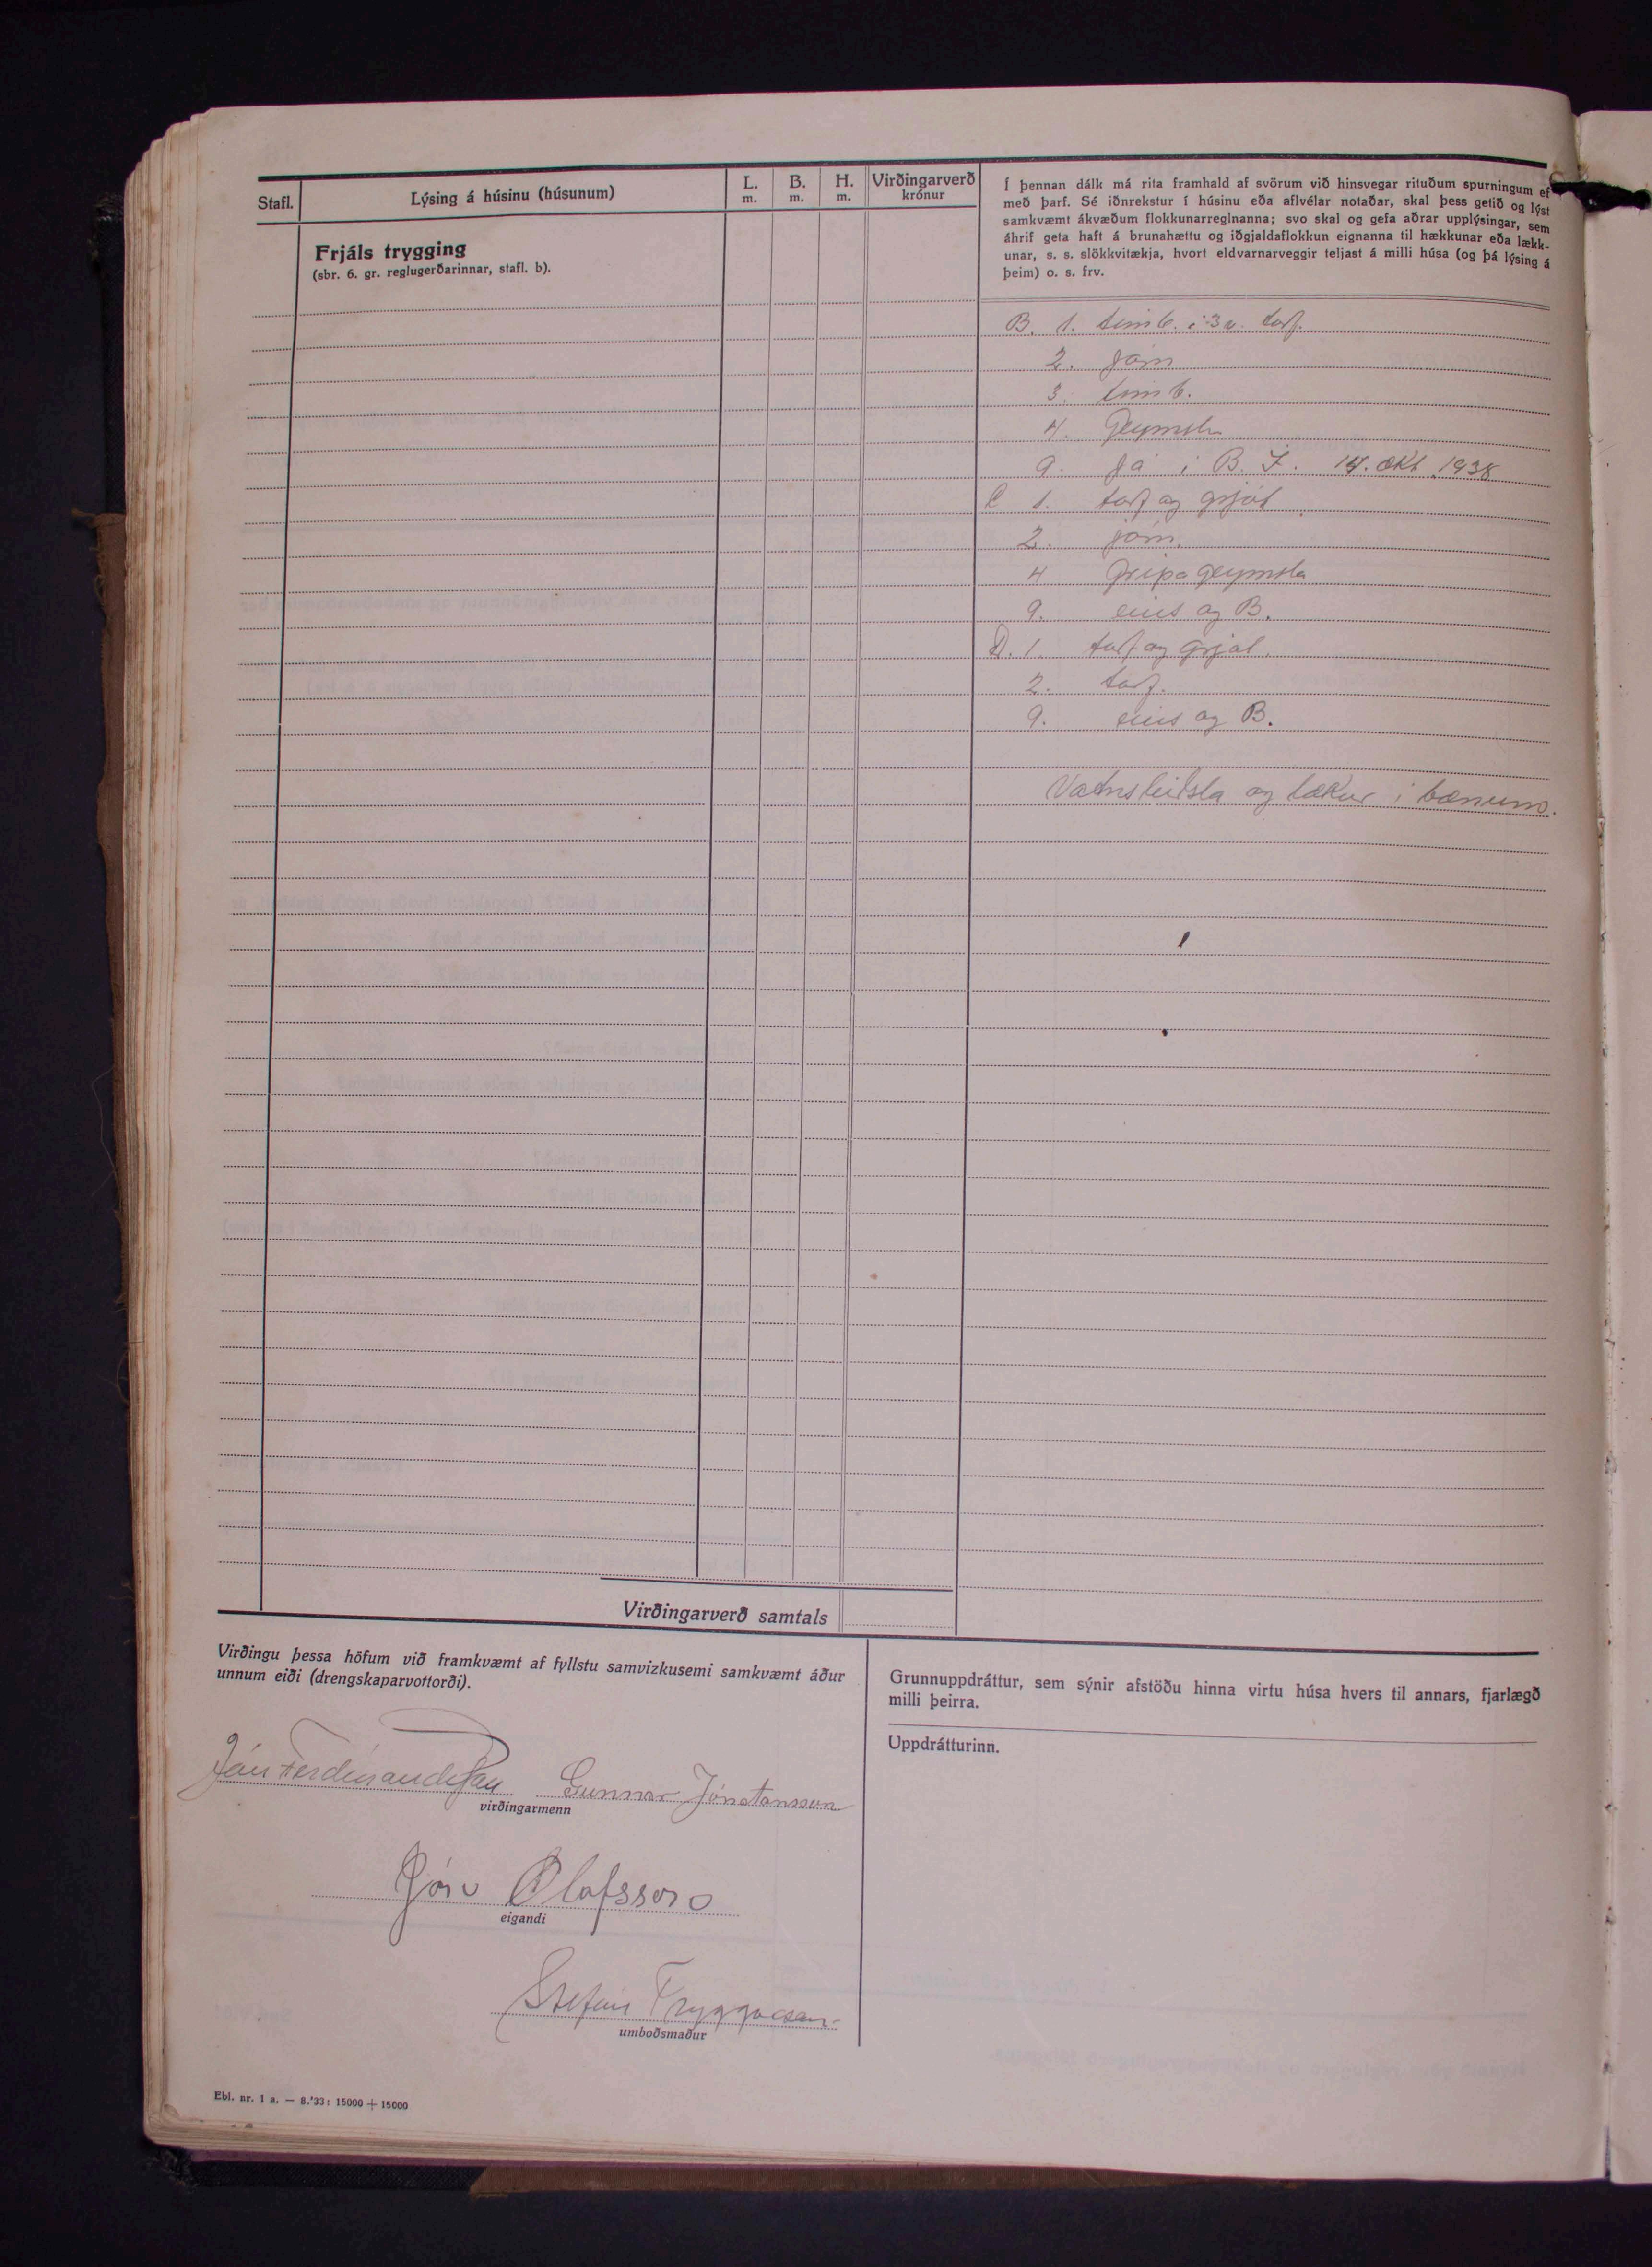 Stafl.
Lýsing á húsinu (húsunum)
L.
m.
B.
m.
H.
m.
Virðingarverð
krónur
Frjáls trygging
(sbr. 6. gr. reglugerðarinnar, stafl. b).
Í þennan dálk má rita framhald af svörum við hinsvegar rituðum spurningum ef
með þarf. Sé iðnrekstur í húsinu eða aflvélar notaðar, skal þess getið og lýst
samkvæmt ákvæðum flokkunarreglnanna; svo skal og gefa aðrar upplýsingar, sem
áhrif geta haft á brunahættu og iðgjaldaflokkun eignanna til hækkunar eða lækk-
unar, s. s. slökkvitækja, hvort eldvarnarveggir teljast á milli húsa (og þá lýsing á
þeim) o. s. frv.
B. 1. timb. í 3 v. torf.
2. járn
3. timb.
4. Geymsla
9. Já í B. Í. 14. okt. 1938
C 1. torf og grjót
2. járn.
4 Gripageymsla
9. eins og B.
D. 1. torf og grjót.
2. torf.
9. eins og B.
Vatnsleiðsla og lækur í bænum.
Virðingarverð samtals
Virðingu þessa höfum við framkvæmt af fyllstu samvizkusemi samkvæmt áður
unnum eiði (drengskaparvottorði).
Jón Ferdinandsson Gunnar Jónatansson
virðingarmenn
Jón Ólafsson
eigandi
Stefán Tryggvason
umboðsmaður
Grunnuppdráttur, sem sýnir afstöðu hinna virtu húsa hvers til annars, fjarlægð
milli þeirra.
Uppdrátturinn.
Ebl. nr. 1 a. — 8.'33: 15000 + 15000